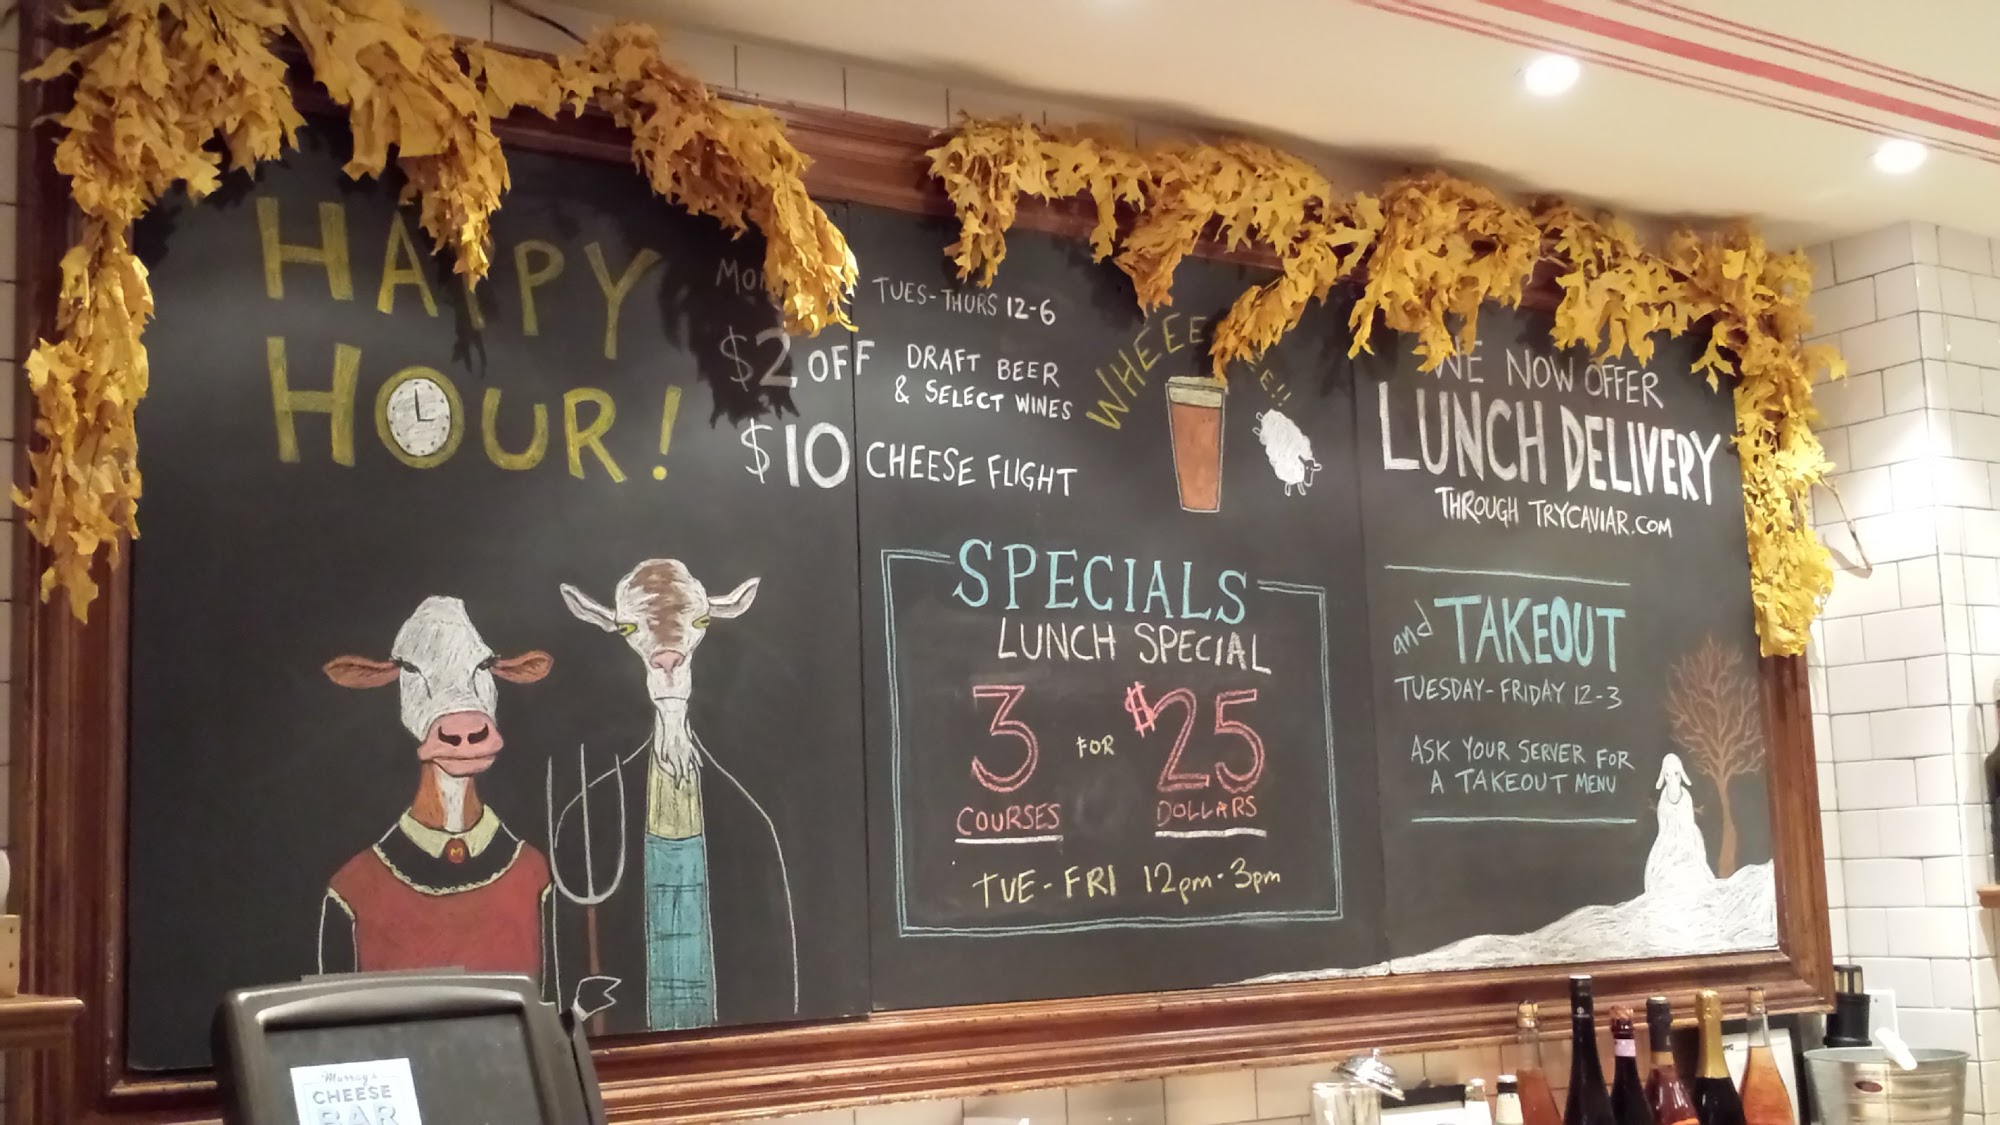 HAPPY
HOUR!
TUES-THURS 12-6
$2 OFF DRAFT BEER
& SELECT WINES
$10 CHEESE FLIGHT
SPECIALS
LUNCH SPECIAL
3 FOR $25
COURSES DOLLARS
TUE-FRI 12pm-3pm
WE NOW OFFER
LUNCH DELIVERY
THROUGH TRYCAVIAR.COM
and TAKEOUT
TUESDAY-FRIDAY 12-3
ASK YOUR SERVER FOR
A TAKEOUT MENU
Murray's
CHEESE
BAR